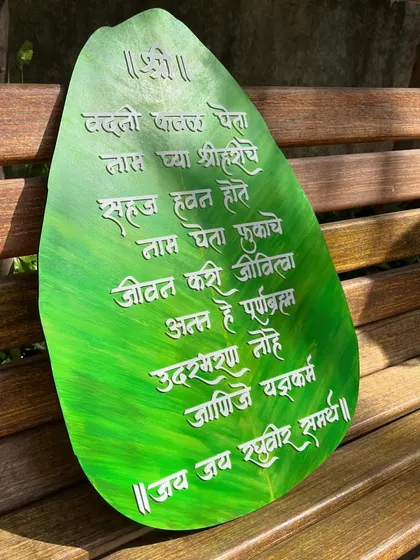 ॥श्री॥
वदनी कवळ घेता
नाम घ्या श्रीहरीचे
सहज हवन होते
नाम घेता फुकाचे
जीवन करी जीवित्वा
अन्न हे पूर्णब्रह्म
उदरभरण नोहे
जाणिजे यज्ञकर्म
॥जय जय रघुवीर समर्थ॥